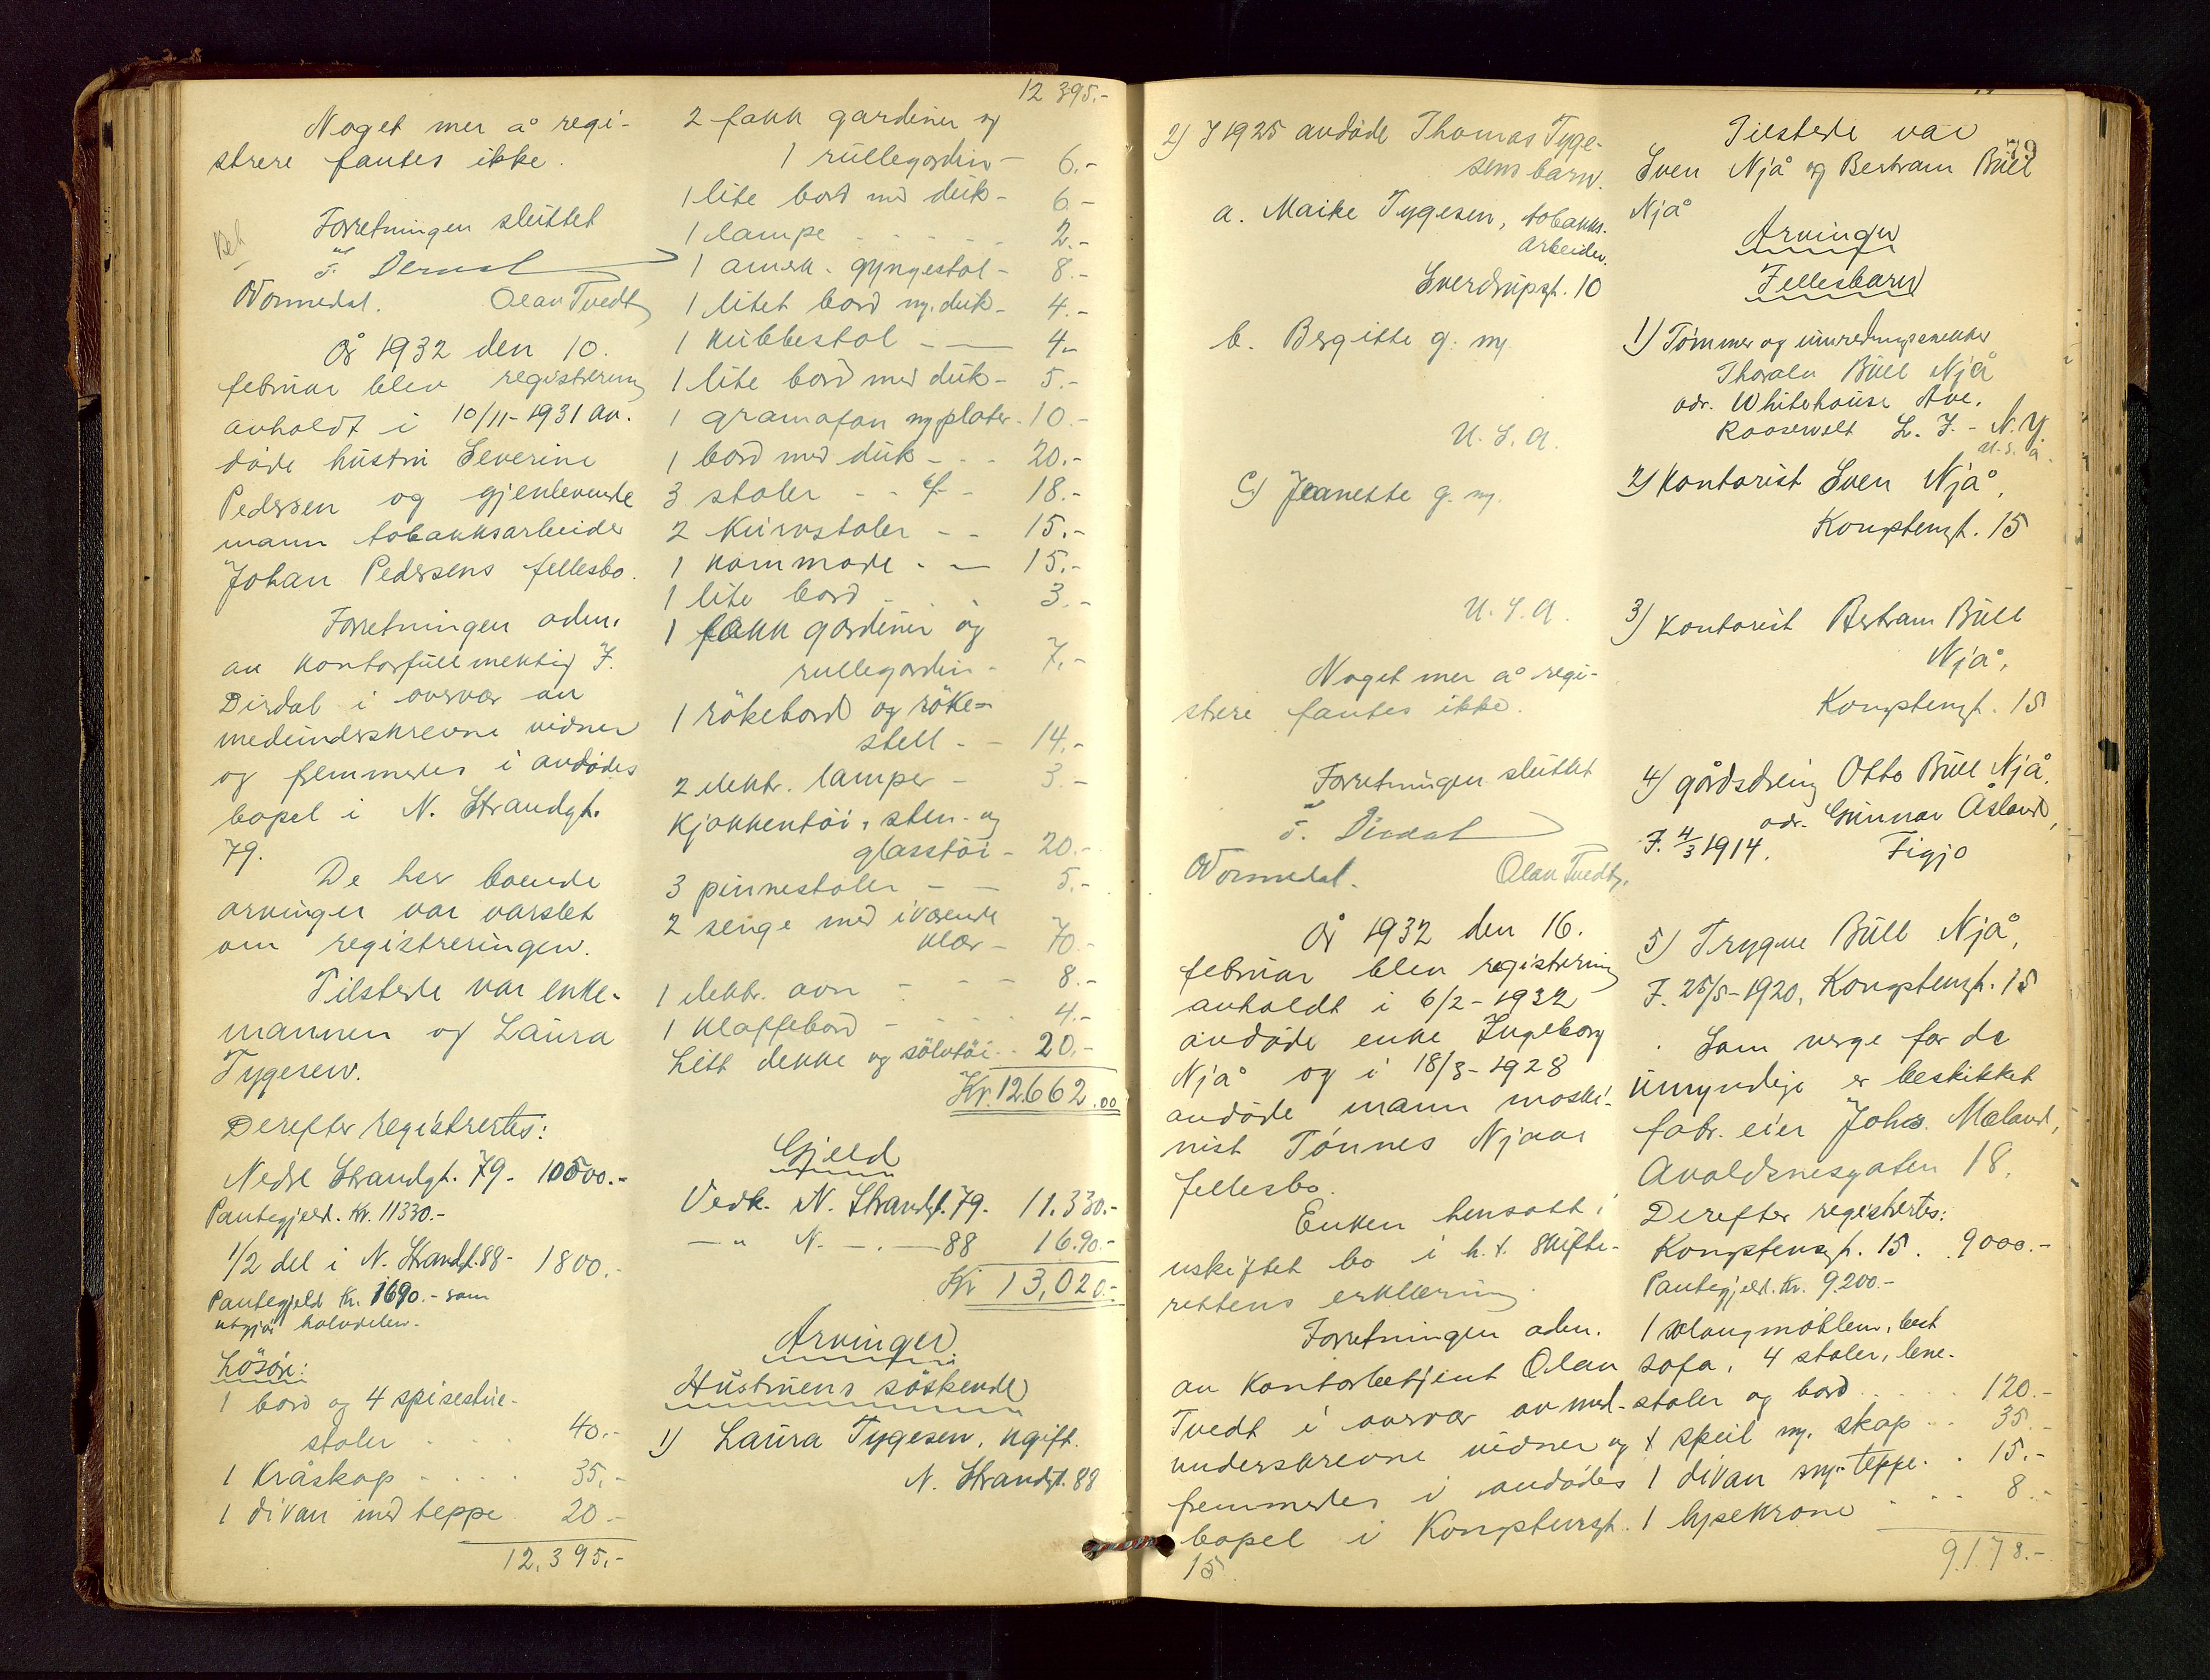 Noget mer å regi-
strere fantes ikke.
Forretningen sluttet
T. Dirdal
O Tormedal. Olav Tvedt
År 1932 den 10.
februar blev registrering
avholdt i 10/11-1931 av-
døde hustru Severine
Pedersen og gjenlevende
mann tobakksarbeider
Johan Pedersens fellesbo.
Forretningen adm.
av kontorfullmektig T.
Dirdal i overvær av
medunderskrevne vidner
og fremmedes i avdødes
bopel i N. Strandgt.
79.
De her boende
arvinger var varslet
om registreringen.
Tilstede var enke-
mannen og Laura
Tygesen.
Derefter registrertes:
Nedre Strandgt. 79. 10500.-
Pantegjeld. Kr. 11330.-
1/2 del i N. Strandgt. 88- 1800.-
Pantegjeld Kr. 1690.- som
utgjør halvdelen.
Løsøre:
1 bord og 4 spisestue-
stoler 40.-
1 Kråskap 35.-
1 divan med teppe 20.-
12.395.-
12 395.-
2 fakk gardiner og
1 rullegardin 6.-
1 lite bord med duk 6.-
1 lampe 2.-
1 amerk. gyngestol 8.-
1 litet bord m. duk 4.-
1 kubbestol 4.-
1 lite bord med duk 5.-
1 gramafon m plater 10.-
1 bord med duk 20.-
3 stoler 18.-
2 kurvstoler 15.-
1 kommode 15.-
1 lite bord 3.-
1 fakk gardiner og
rullegardin 7.-
1 rökebord og röke-
stell 14.-
2 elektr. lamper 3.-
Kjøkkentöi, sten- og
glasstöi 20.-
3 pinnestoler 5.-
2 senge med iværende
klær 70.-
1 elektr. ovn 8.-
1 klaffebord 4.-
Litt dekke og sölvtöi 20.-
Kr. 12.662.00
Gjeld
Vedk. N. Strandgt. 79. 11.330.-
—"— N. —.— 88 16.90.-
Kr 13,020.-
Arvinger
Hustruens söskende
1) Laura Tygesen, ugift.
N. Strandgt. 88
2) I 1925 avdøde Thomas Tyge-
sens barn.
a. Maike Tygesen, tobakks-
arbeider.
Sverdrupsgt. 10
b. Bergitte g. m.
U. S. A.
c) Jeanette g. m.
U. S. A.
Noget mer å regi-
strere fantes ikke.
Forretningen sluttet
T. Dirdal
O Tormedal. Olav Tvedt.
År 1932 den 16.
februar blev registrering
avholdt i 6/2-1932
avdøde enke Ingeborg
Njå og i 18/3-1928
avdøde mann maski-
nist Tönnes Njaas
fellesbo.
Enken hensatt i
uskiftet bo i h. t. skifte-
rettens erklæring.
Forretningen adm.
av kontorbetjent Olav
Tvedt i overvær av med-
underskrevne vidner og
fremmedes i avdødes
bopel i Kongstensgt.
15.
79
Tilstede var
Sven Njå og Bertram Bull
Njå
Arvinger
Fellesbarn
1) Tømmer og innredningssnekker
Thoralv Bull Njå
adr. Whitehouse Ave.
Roosevelt L. I. - N. Y
U. S. A.
2) Kontorist Sven Njå,
Kongstensgt. 15
3) Kontorist Bertram Bull
Njå,
Kongstensgt. 15
4) gårdsdreng Otto Bull Njå,
adr. Gunnar Åsland,
F. 4/3 1914. Figjo
5) Trygve Bull Njå,
F. 25/5-1920, Kongstensgt. 15
Som verge for de
umyndige er beskikket
fabr. eier Johs. Mæland,
Avaldsnesgaten 18.
Derefter registrertes:
Kongstensgt. 15. 9000.-
Pantegjeld. Kr. 9.200.-
1 salongmöblem. best
sofa, 4 stoler, lene-
stoler og bord 120.-
1 speil m. skap 35.-
1 divan m. teppe 15.-
1 lysekrone 8.-
9.178.-